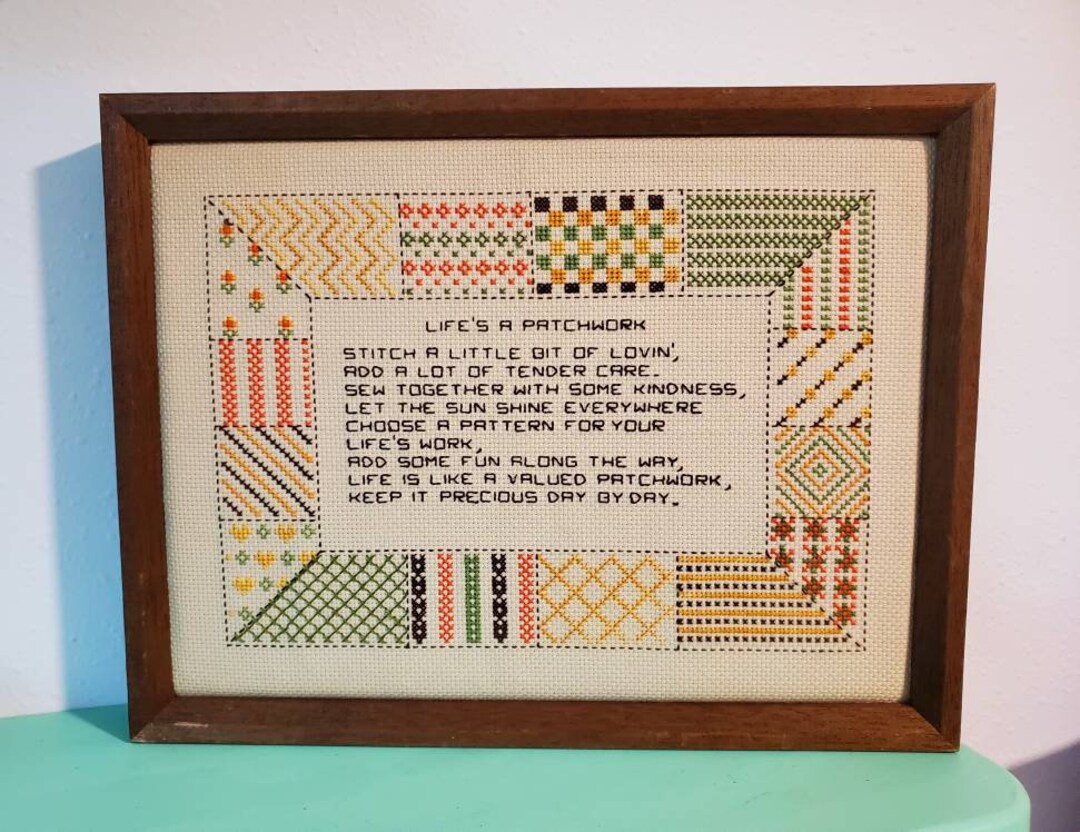 LIFE'S A PATCHWORK
STITCH A LITTLE BIT OF LOVIN',
ADD A LOT OF TENDER CARE.
SEW TOGETHER WITH SOME KINDNESS,
LET THE SUN SHINE EVERYWHERE
CHOOSE A PATTERN FOR YOUR
LIFE'S WORK,
ADD SOME FUN ALONG THE WAY,
LIFE IS LIKE A VALUED PATCHWORK,
KEEP IT PRECIOUS DAY BY DAY.